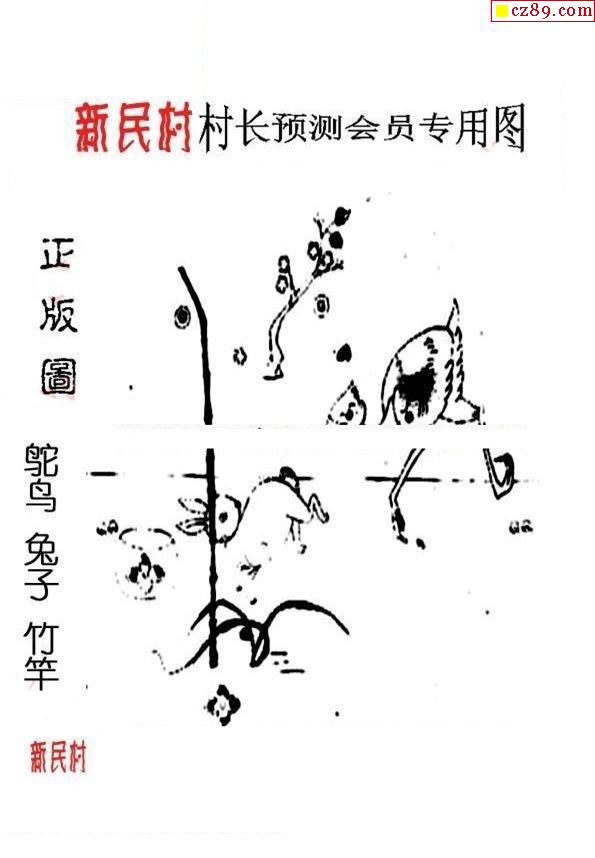 cz89.com
新民村村长预测会员专用图
正版圖
鸵鸟 兔子 竹竿
新民村